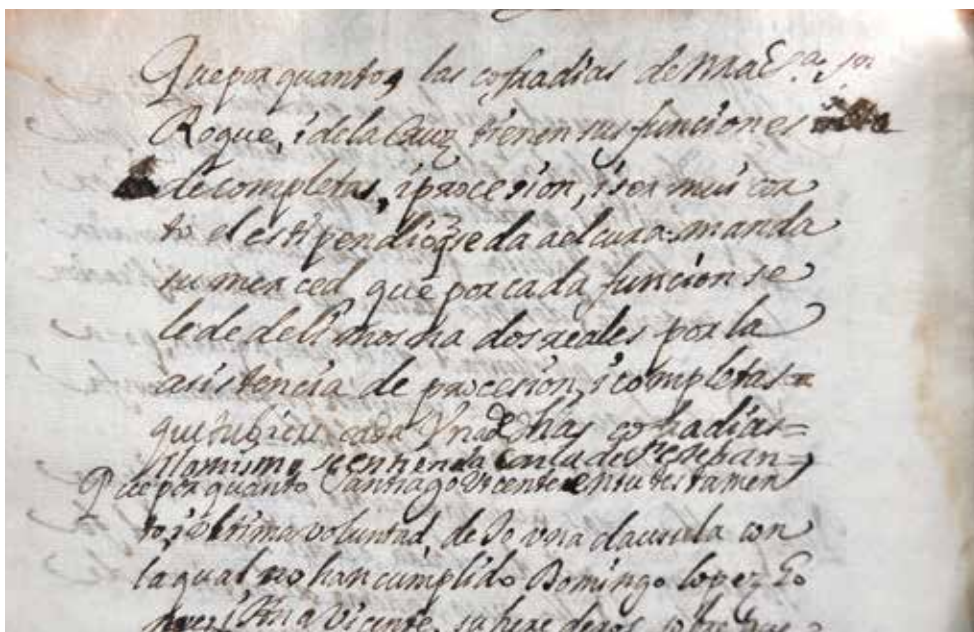 Que por quanto las cofradias de nra Sra. sn
Roque, i de la Cruz tienen sus funciones
de completas, i procesion, i ser mui cor
to el estipendio qe se da a el cura: manda
su merced que por cada funcion se
le de de limosna dos reales por la
asistencia de procesion, i completas
que tubiere cada Una de dhas cofradias=
i lo mismo se entienda con la de Sn esteban=
Que por quanto Santiago Vicente en su testamen
to, i ultima voluntad, dejo una clausula con
la qual no han cumplido Domingo lopez
i Ana Vicente, sus herederos sobre que